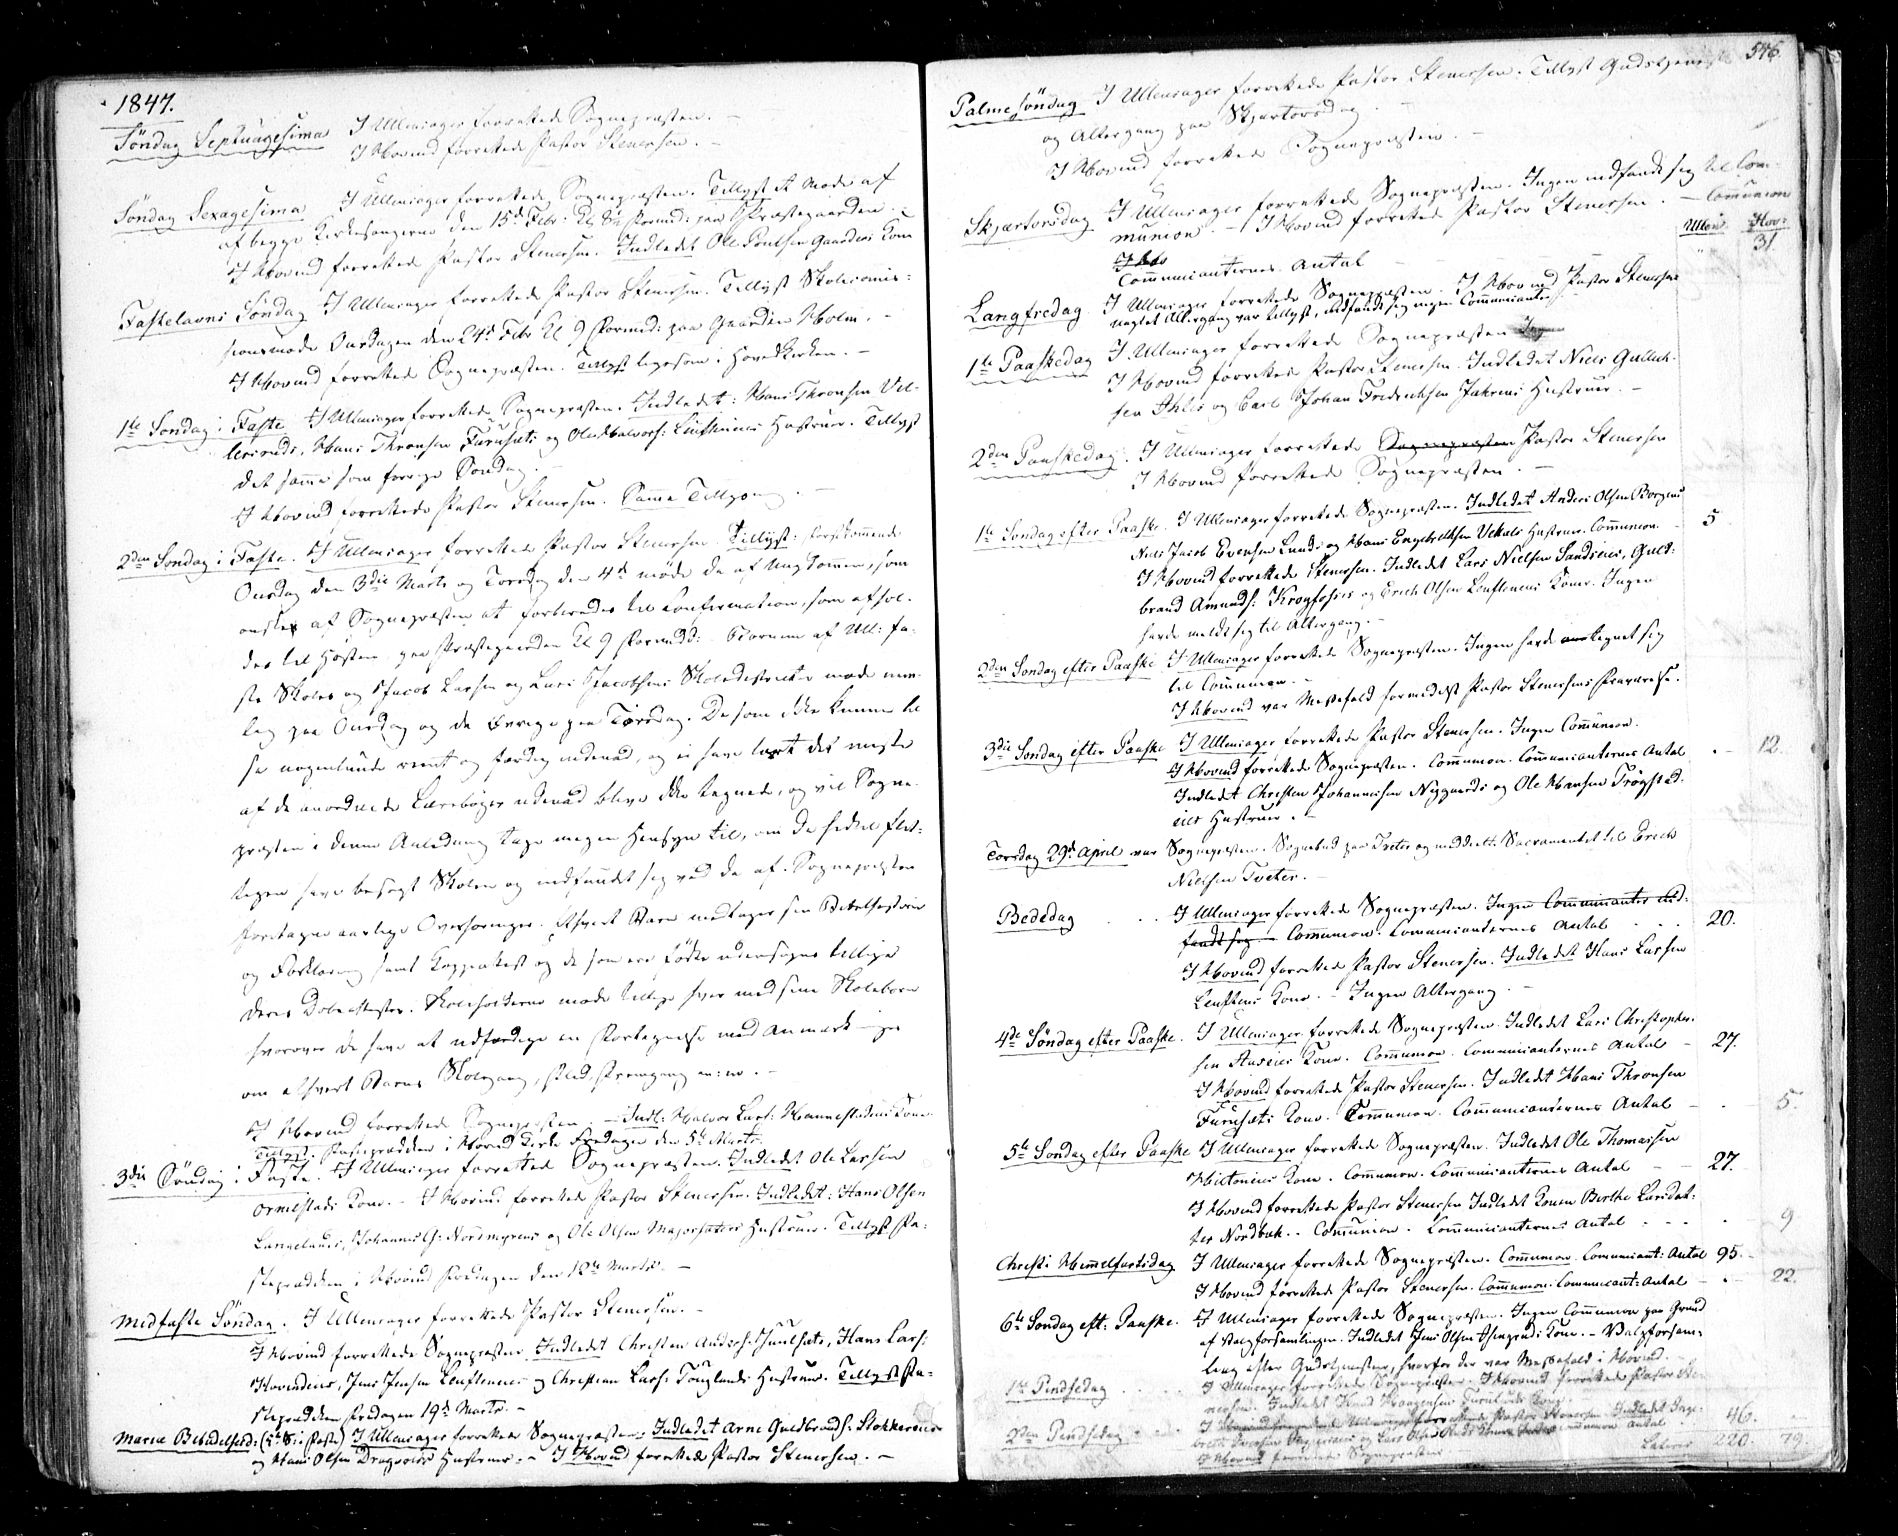 1847.
Söndag Septuagesima I Ullensager forrettede Sognepræsten. -
I Hovind forrettede Pastor Stenersen. -
Söndag Sexagesima I Ullensager forrettede Sognepræsten. Tillyst et Mode af
af begge Kirkesangerne den 15d Febr: Kl. Formd: paa Præstegaarden. -
I Hovind forrettede Pastor Stenersen. Indledet Ole Kone
Fastelavns Söndag I Ullensager forrettede Pastor Stenersen. Tillyst Skolecomis-
sionsmöde Onsdagen den 24d Febr Kl 9 Formd: paa Gaarden Holm. -
I Hovind forrettede Sognepræsten. Tillyst ligesom i Hovedkirken. -
1ste Söndag i Faste I Ullensager forrettede Sognepræsten. Indledet: Hans Thronsen Vel-
, Hans Thronsen Furusets og Ole Halvors: Hustruer. Tillyst
det samme som forrige Söndag. -
I Hovind forrettede Pastor Stenersen. Samme Tillysning. -
2den Söndag i Faste. I Ullensager forrettede Pastor Stenersen. Tillyst: Förstkommende
Onsdag den 3die Marts og Torsdag den 4d möde de af Ungdommen, som
önskes af Sognepræsten at forberedes til Confirmation, som afhol-
des til Hösten paa Præstegaarden Kl 9 Formidd: Börnene af Ull: fa-
ste Skoler og Jacob Larsen og Lars Jacobsens Skoledistrikter möde nem-
lig paa Onsdag og de Övrige paa Torsdag. De som ikke kunne læ-
se nogenlunde reent og færdig indenad, og ei have lært det meste
af de anordnede Lærebøger udenad blive ikke tegnede, og vil Sogne-
præsten i denne Anledning tage megen Hensyn til, om de hidtil flit-
tigen have besögt Skolen og indfundet sig ved de af Sognepræsten
foretagne aarlige Overhøringer. Ethvert Barn medtager sin Bibelhistorie
og Forklaring samt Koppeattest og de som ere födte udensogns tillige
deres Döbeattester. Skoleholderne möde tillige hver med sine Skolebörn
hvorover de have at udfærdige en Fortegnelse med Anmærkninger
om ethvert Barns Skolegang, Flid, Fremgang m: m. -
I Hovind forrettede Sognepræsten. - Indl: Halvor Lars: Kone.
Tillyst: Fasteprædiken i Hovind Kirke Fredagen den 5te Marts.
3die Söndag i Faste. I Ullensager forrettede Sognepræsten. Indledet Ole Larsen
Ormelstads Kone. - I Hovind forrettede Pastor Stenersen. Indledet: Hans Olsen
, Johannes G: Nordmyrens og Ole Olsen Hustruer. Tillyst Fa-
steprædiken i Hovind Fredagen den 12te Marts. -
Midfaste Söndag. I Ullensager forrettede Pastor Stenersen. -
I Hovind forrettede Sognepræsten. Indledet Christen Anders: , Hans Lars:
Hovindeies, Jens Jensen og Christian Lars: Hustruer. Tillyst Fa-
steprædiken Fredagen 19d Marts. -
Mariæ Bebudelsesd: (5te S: i Faste) I Ullensager forrettede Sognepræsten. Indledet Arne Guldbrands:
og Hans Olsen Hustruer. - I Hovind forrettede Pastor Stenersen. -
546.
Palmesöndag I Ullensager forrettede Pastor Stenersen. Tillyst Gudstjeneste
og Altergang paa Skjærtorsdag. -
I Hovind forrettede Sognepræsten. -
Skjærtorsdag I Ullensager forrettede Sognepræsten. Ingen indfandt sig til Com-
munion. - I Hovind forrettede Pastor Stenersen. - Communion
Ullens. Hov:
Communicanternes Antal 31
Langfredag I Ullensager forrettede Sognepræsten. I Hovind Pastor Stenersen
uagtet Altergang var tillyst, indfandt sig ingen Communicanter.
1ste Paaskedag I Ullensager forrettede Sognepræsten
I Hovind forrettede Pastor Stenersen. Indledet Niels Gulich-
sen og Carl Johan Fredriksen Hustruer. -
2den Paaskedag. I Ullensager forrettede Sognepræsten Pastor Stenersen
I Hovind forrettede Sognepræsten. -
1ste Söndag efter Paaske. I Ullensager forrettede Sognepræsten. Indledet Anders Olsen Borgens 5
Niels Jacob Evensen Lunds og Hans Engebrethsen Hustruer. Communion.
I Hovind forrettede Stenersen. Indledet Lars Nielsen , Guld-
brand Amunds: Krogfosses og Erich Olsen Koner. Ingen
havde meldt sig til Altergang. -
2den Söndag efter Paaske I Ullensager forrettede Sognepræsten. Ingen havde tegnet sig
til Communion. -
I Hovind var Messefald formedelst Pastor Stenersens Fraværelse.
3die Söndag efter Paaske I Ullensager forrettede Pastor Stenersen. Ingen Communion.
I Hovind forrettede Sognepræsten. Communion. Communicanternes Antal . - 12.
Indledet Christen Johannesen Nygaards og Ole Hansen Trögstad-
eies Hustruer. -
Torsdag 29d April var Sognepræsten i Sognebud paa Tveter og meddeelte Sacramentet til Erich
Nielsen Tveter. -
Bededag . . . I Ullensager forrettede Sognepræsten. Ingen Communicanter ind-
fandt sig Communion. Communicanternes Antal . . . 20.
I Hovind forrettede Pastor Stenersen. Indledet Hans Larsen
Kone. - Ingen Altergang. -
4de Söndag efter Paaske. I Ullensager forrettede Sognepræsten. Indledet Lars Christophers:
sen Kone. Communion. Communicanternes Antal - 27.
I Hovind forrettede Pastor Stenersen. Indledet Hans Thronsen
Furusets Kone. Communion. Communicanternes Antal - . 5.
5te Söndag efter Paaske I Ullensager forrettede Sognepræsten. Indledet Ole Thomassen
Kone. Communion. Communicanternes Antal - - 27.
I Hovind forrettede Pastor Stenersen Indledet Konen Berthe Larsdat-
ter Nordbak. - Communion. Communicanternes Antal . . . 9
Christi Himmelfartsdag I Ullensager forrettede Sognepræsten. Communion. Communicant: Antal 95. -
I Hovind forrettede Pastor Stenersen. Communion: Communicant: Antal - . - 22.
6te Söndag eft: Paaske. I Ullensager forrettede Sognepræsten. Ingen Communion paa Grund
af Valgforsamlingen. Indledet Jens Olsen Kone. - Valgforsam-
ling efter Gudstjenesten, hvorfor der var Messefald i Hovind. -
1ste Pindsedag . . . I Ullensager forrettede Sognepræsten. I Hovind forrettede Pastor Ste-
nersen. Indledet Knud
2den Pindsedag . . . I Ullensager forrettede Pastor Stenersen Indledet Inge-
og Lars Olsen Antal 46. -
I Hovind forrettede Sognepræsten Lateris 220. 79.